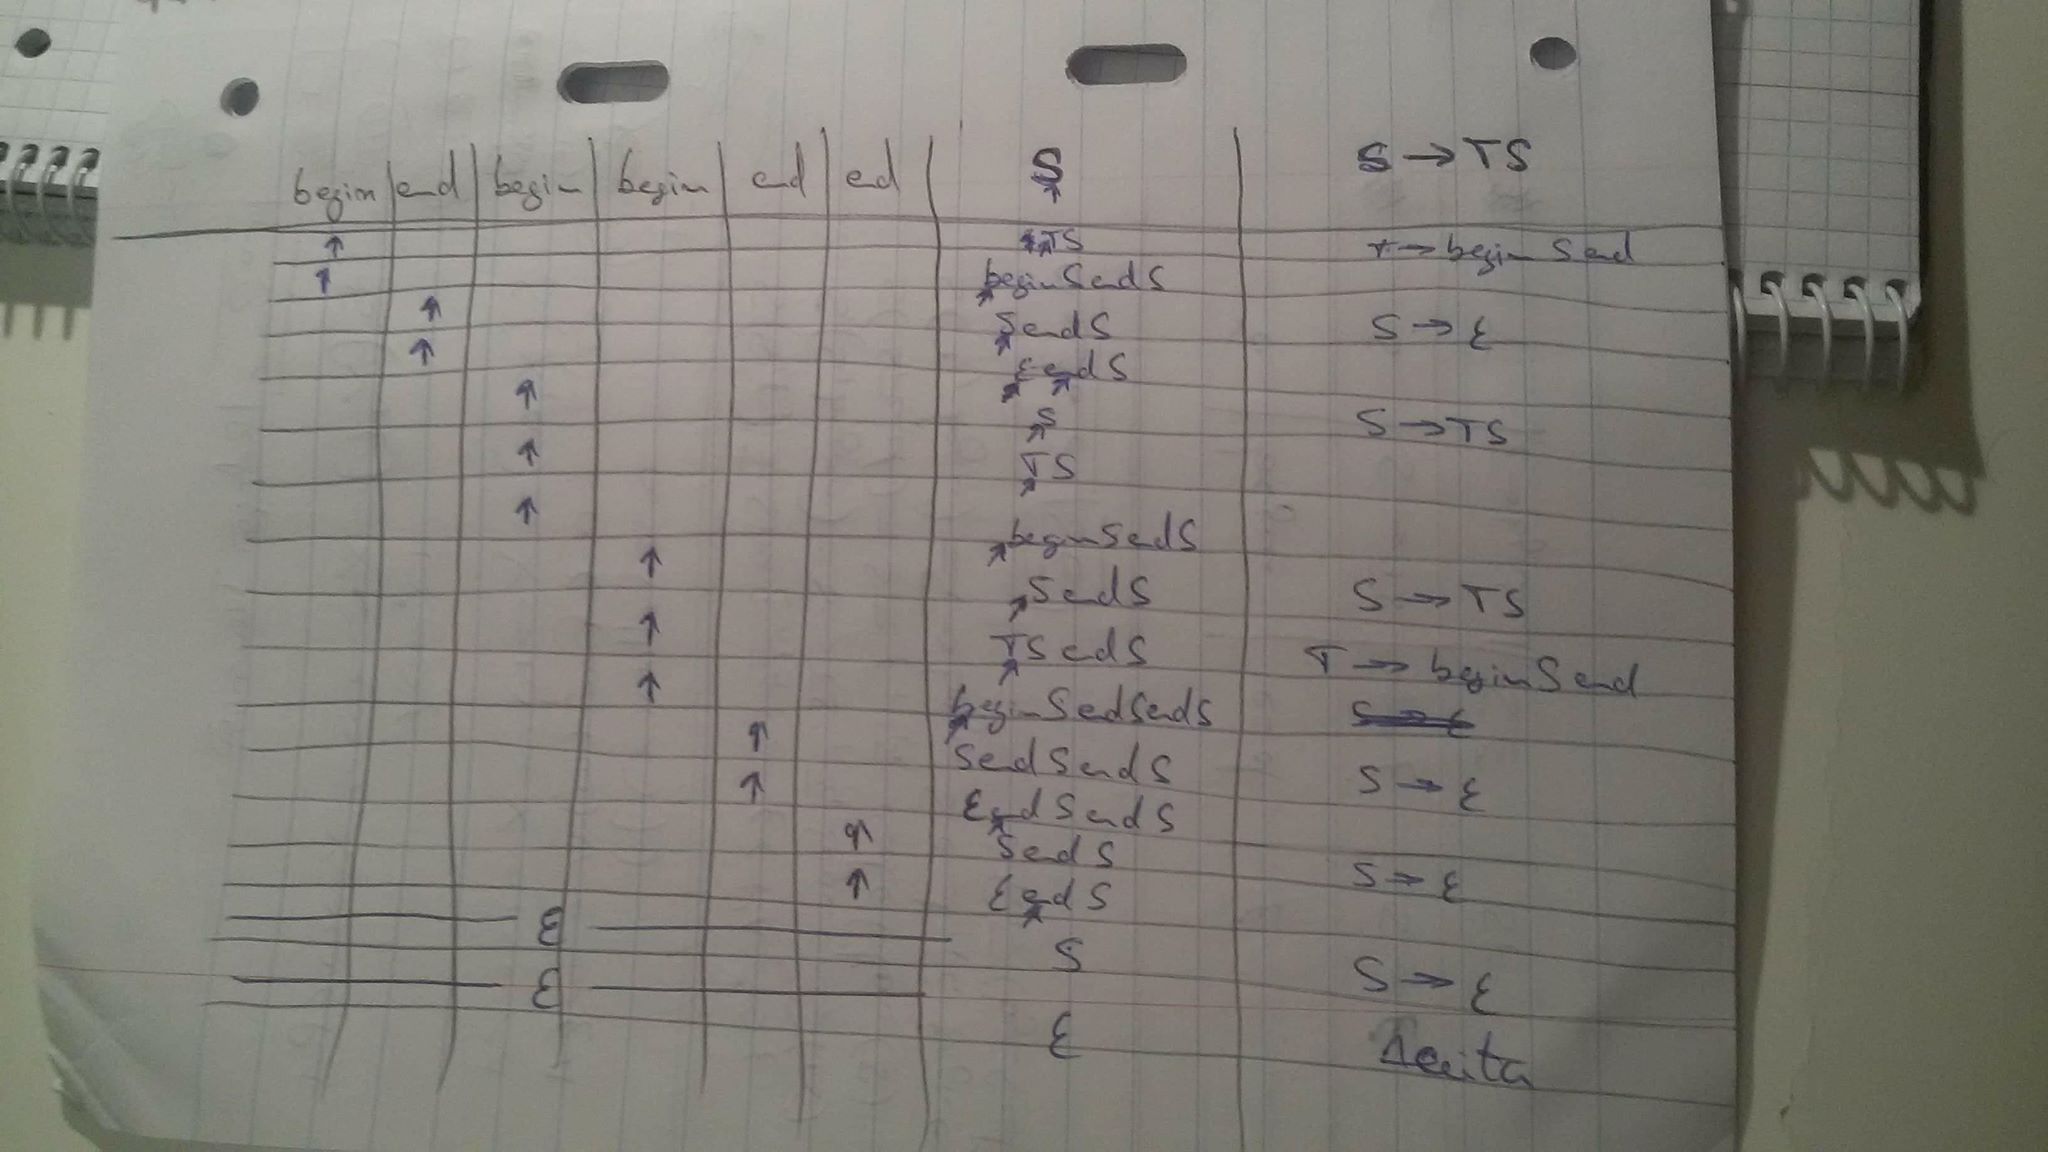 begin end begin begin end end S S → TS
↑ TS T → begin S end
↑ begin S end S
↑ S end S S → ε
↑ ε end S
↑ S S → TS
↑ TS
↑ begin S end S
↑ S end S S → TS
↑ TS end S T → begin S end
↑ begin S end S end S
↑ S end S end S S → ε
↑ ε end S end S
↑ S end S S → ε
↑ ε end S
ε S S → ε
ε ε